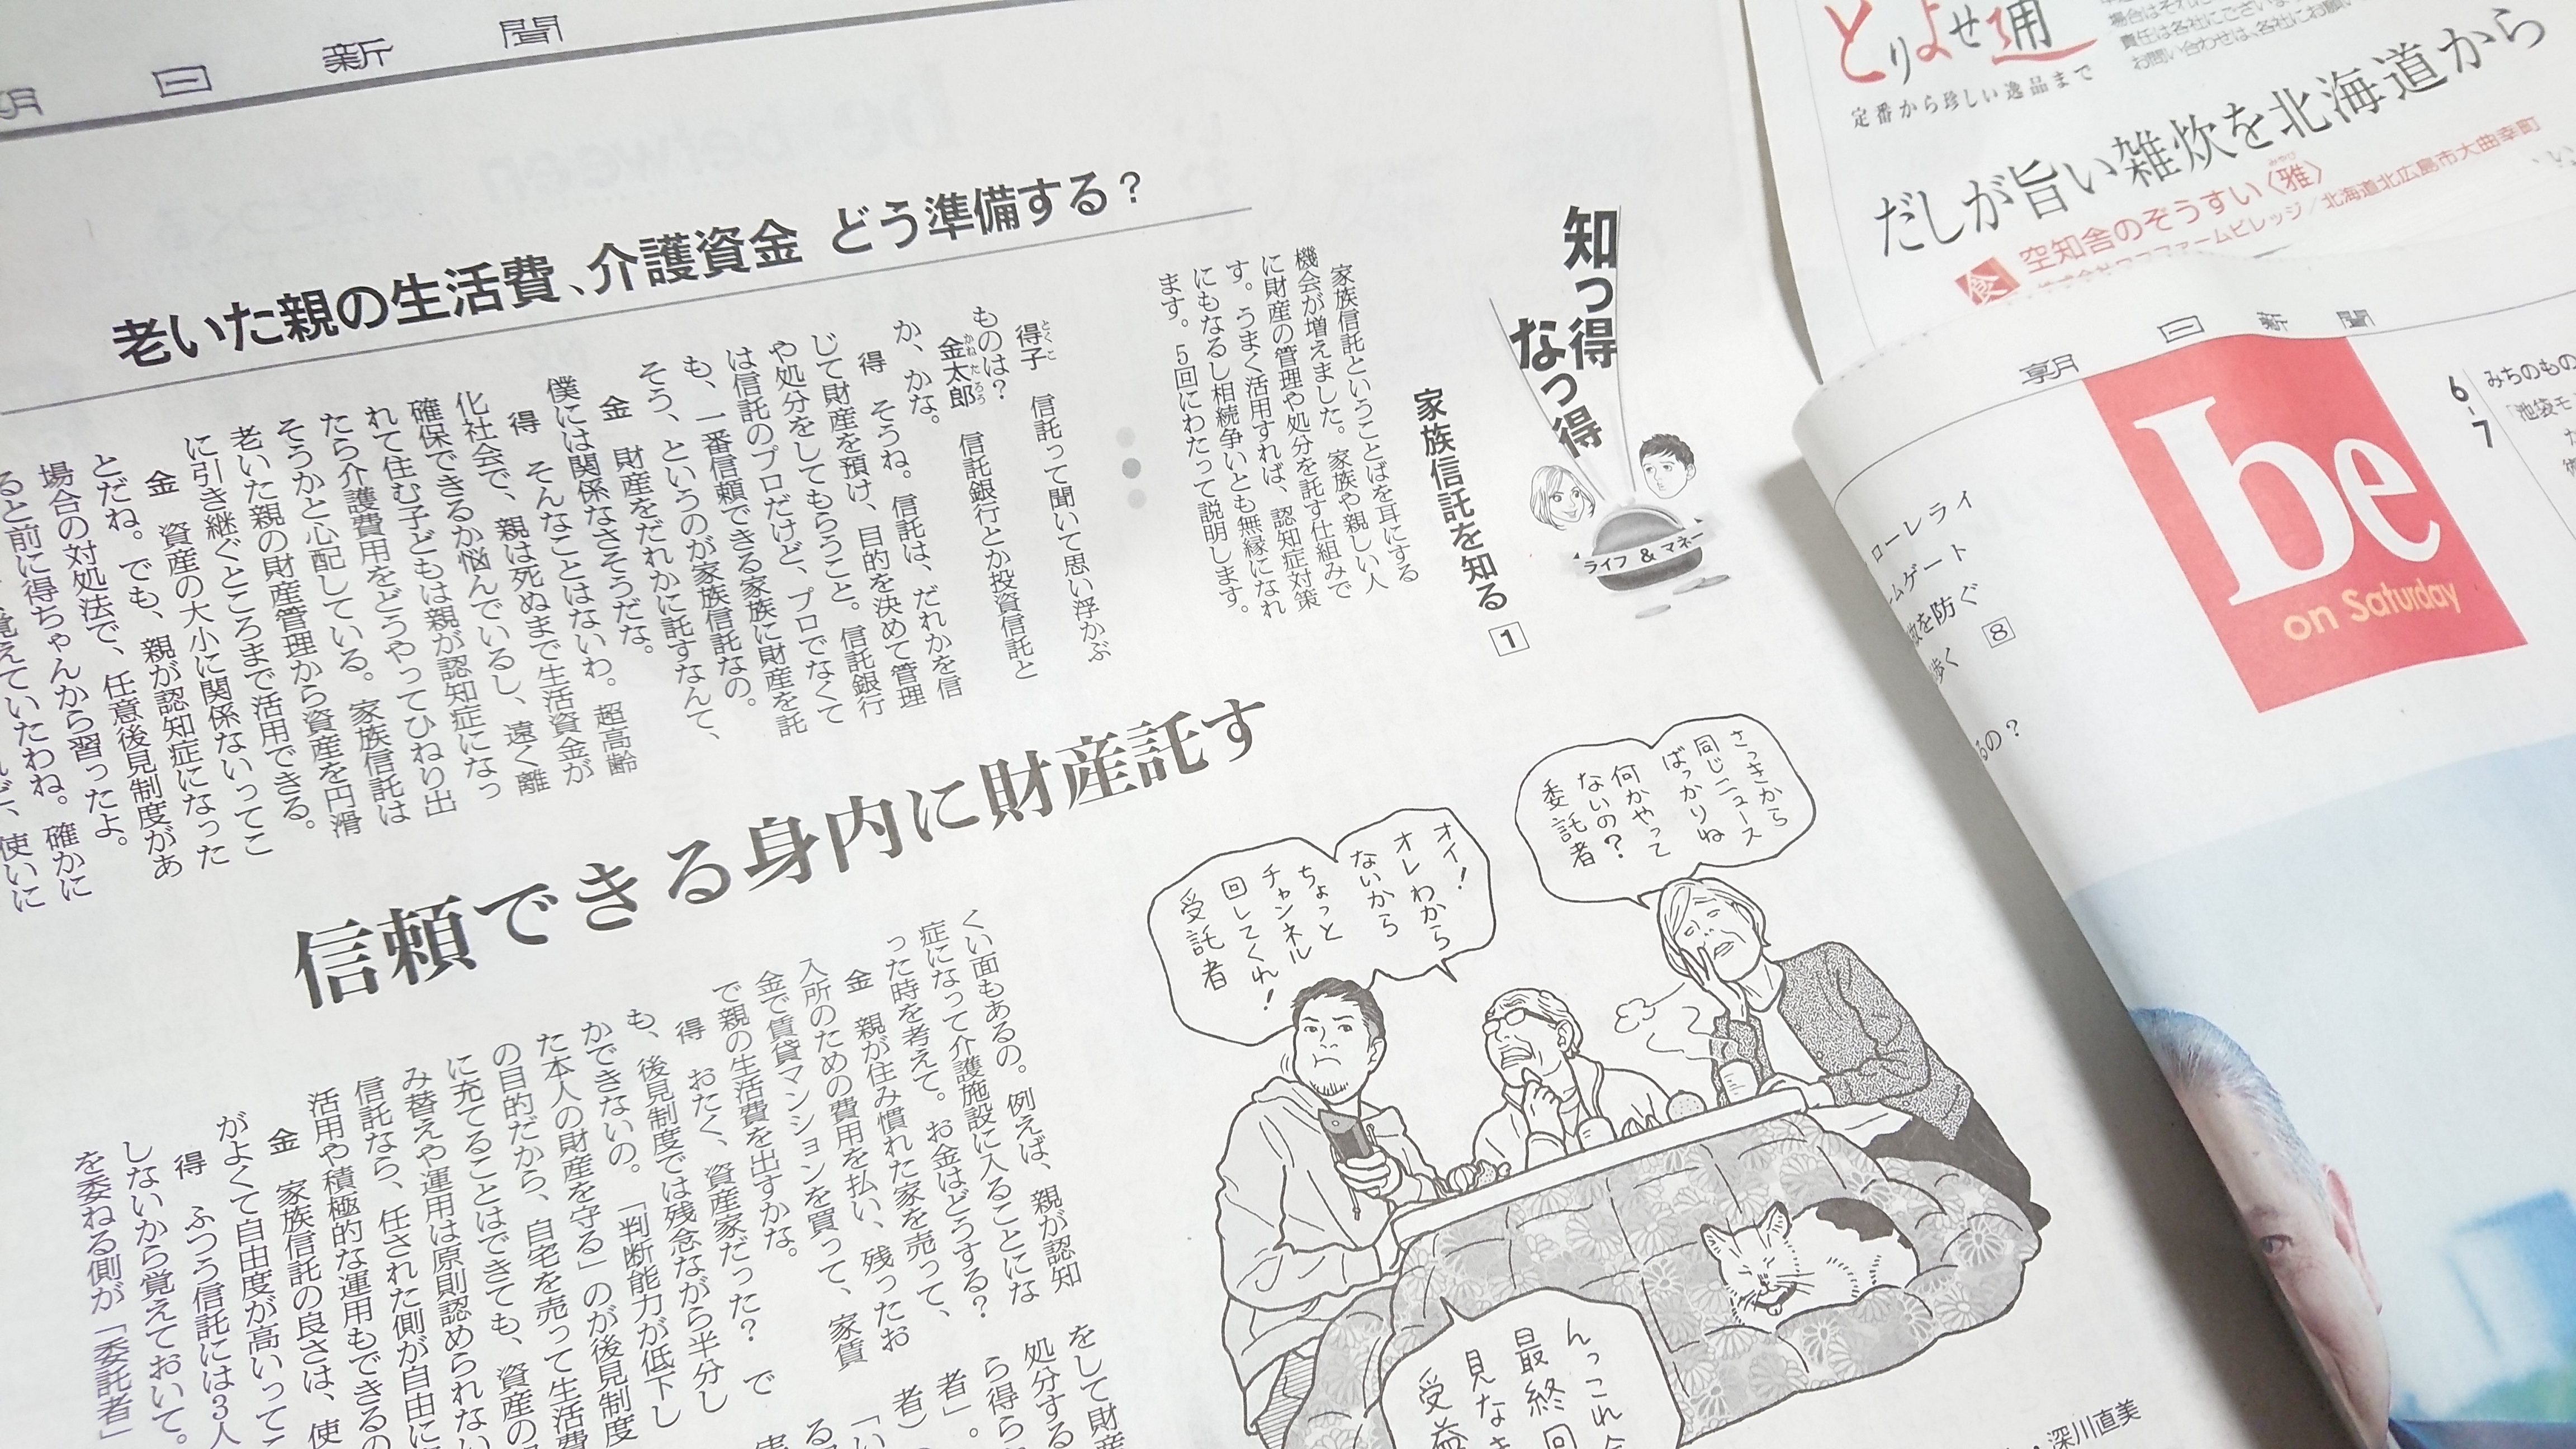 日新聞
老いた親の生活費、介護資金 どう準備する?
知っ得
なっ得
ライフ&マネー
家族信託を知る 1
家族信託ということばを耳にする
機会が増えました。家族や親しい人
に財産の管理や処分を託す仕組みで
す。うまく活用すれば、認知症対策
にもなるし相続争いとも無縁になれ
ます。5回にわたって説明します。
得子 信託って聞いて思い浮かぶ
とくこ
ものは?
金太郎 信託銀行とか投資信託と
かねたろう
か、かな。
得 そうね。信託は、だれかを信
じて財産を預け、目的を決めて管理
や処分をしてもらうこと。信託銀行
は信託のプロだけど、プロでなくて
も、一番信頼できる家族に財産を託
そう、というのが家族信託なの。
金 財産をだれかに託すなんて、
僕には関係なさそうだな。
得 そんなことはないわ。超高齢
化社会で、親は死ぬまで生活資金が
確保できるか悩んでいるし、遠く離
れて住む子どもは親が認知症になっ
たら介護費用をどうやってひねり出
そうかと心配している。家族信託は
老いた親の財産管理から資産を円滑
に引き継ぐところまで活用できる。
金 資産の大小に関係ないってこ
とだね。でも、親が認知症になった
場合の対処法で、任意後見制度があ
ると前に得ちゃんから習ったよ。
覚えていたわね。確かに
使いに
信頼できる身内に財産託す
くい面もあるの。例えば、親が認知
症になって介護施設に入ることにな
った時を考えて。お金はどうする?
金 親が住み慣れた家を売って、
入所のための費用を払い、残ったお
金で賃貸マンションを買って、家賃
で親の生活費を出すかな。
得 おたく、資産家だった? で
も、後見制度では残念ながら半分し
かできないの。「判断能力が低下し
た本人の財産を守る」のが後見制度
の目的だから、自宅を売って生活費
に充てることはできても、資産の
み替えや運用は原則認められない
信託なら、任された側が自由に
活用や積極的な運用もできるの
金 家族信託の良さは、使
がよくて自由度が高いってこ
得 ふつう信託には3人
しないから覚えておいて。
を委ねる側が「委託者」
をして財産
処分する
ら得ら
者」。
者)
さっきから
同じニュース
ばっかりね
何かやって
ないの?
委託者
オイ!
オレわから
ないから
ちょっと
チャンネル
回してくれ!
受託者
んっこれ
最終回
見な
受益
・深川直美
とりよせ通
定番から珍しい逸品まで
責任は各社にございま
お問い合わせは、各社にお願い
だしが旨い雑炊を北海道から
食 空知舎のぞうすい〈雅〉
みやび
ファームビレッジ/北海道北広島市大曲幸町
朝日新聞
be
on Saturday
6-7
みちのもの
「池袋モ
ローレライ
ムゲート
を防ぐ 8
歩く
るの?